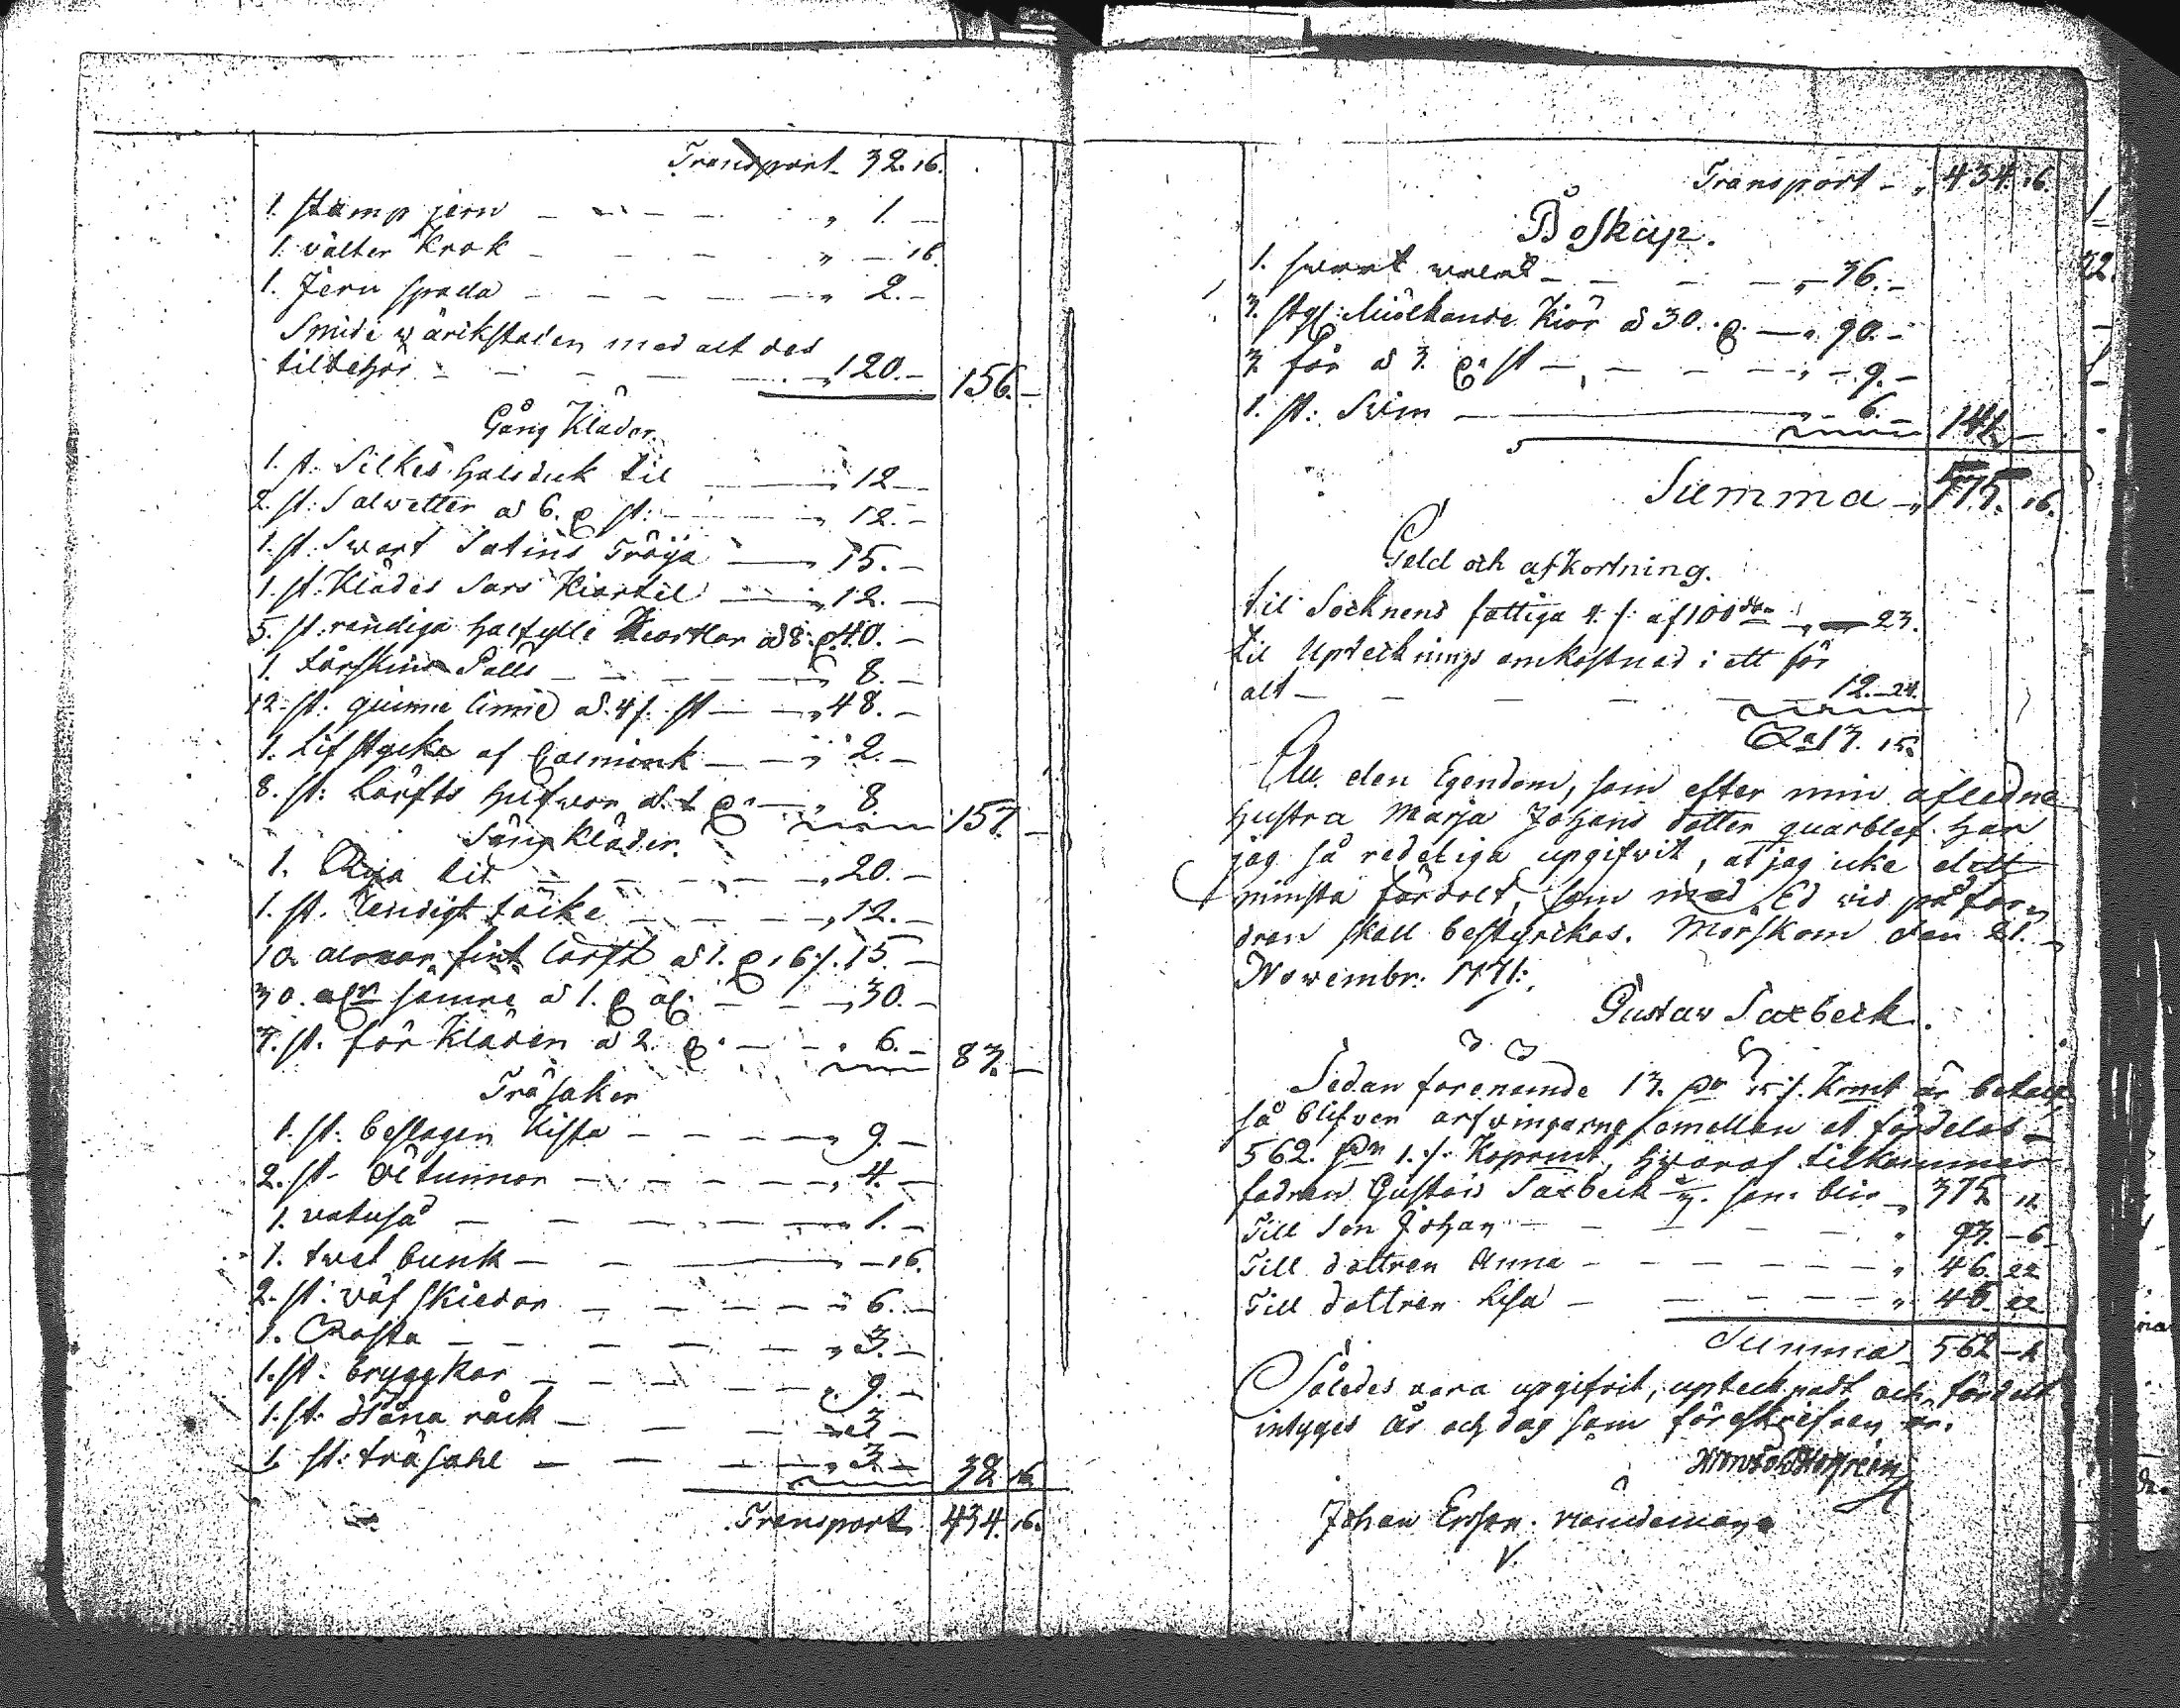 Transport 32. 16.
1. stamp jern — — — " 1. —
1. välter Krok — — — " — 16.
1. Jern spada — — — " 2. —
Smide wärckstaden med alt des
tilbehör — — — " 120. — 156. —
Gång Kläder.
1. st: Silkes halsduk til — " 12 —
2. st: Salwetter a 6. st: — " 12. —
1. st: Swart Satins Tröija — " 15. —
1. st: Klädes Sars Kiortel — " 12. —
5. st: randiga halfylle Kiortlar a 8. 40. —
1. fårskins Pälls — — " 8. —
12. st: quinne linne a 4 /. st — " 48. —
1. Lifstycke af Calmink — " 2. —
8. st: Lärfts hufwor a 1 — " 8. 157. —
Säng Kläder.
1. Rya til — — — " 20. —
1. st. Randigt täcke — — " 12. —
10. alnar fint lärft a 1. 16 /. 15. —
30. aln sämre a 1. al: — " 30. —
3. st. för Kläden a 2. — " 6. — 83. —
Träsaker
1. st: beslagen Kista — — " 9. —
2. st. öltunnor — — " 4. —
1. vatuså — — — " 1. —
1. twet bunk — — — " — 16.
2. st: väf skiedar — — " 6. —
1. Rosta — — — " 3. —
1. st: bryggkar — — " 9. —
1. st: råck — — " 3 —
1. st: träsahl — — " 3. — 38 16
Transport 434. 16.
Transport — " 434. 16.
Boskap.
1. swart — — " 36. —
3. st Miölkande Kiör a 30. — " 90. —
3 får a 3. st — — " 9. —
1. st: Swin — " 6. — 141 —
Summa — " 575. 16.
Geld och afkortning.
til Socknens fattiga 4. /. af 100 dr — 23.
til Upteckningsomkostnad i ett för
alt — — — 12. 24.
13. 15.
All den Egendom, som efter min afledne
hustra Marja Johans dotter quarblef. har
jag så redeliga upgifwit, at jag icke det
minsta fördolt, som med Ed vid påfor-
dran skall bestyrckas. Morskom den 21.
Novembr: 1771:.
Gustav Saxbeck.
Sedan forenemde 13. Dr 15 /. Kmt är betalt,
så blifver arfwingarne emellan at fördelas
562. Dr 1. /. Koprmt, hwaraf tilkommer
fadren Gustav Saxbeck 2/3. som blir " 375 "
Till Son Johan — — — " 93. — 6
Till dottren Anna — — — " 46. 22
Till dottren Lisa — — — " 46. 22
Summa 562 —
Således vara upgifvit, upteknadt och fördelt
intyges år och dag som föreskrifven är.
Johan Ersson. nämdeman